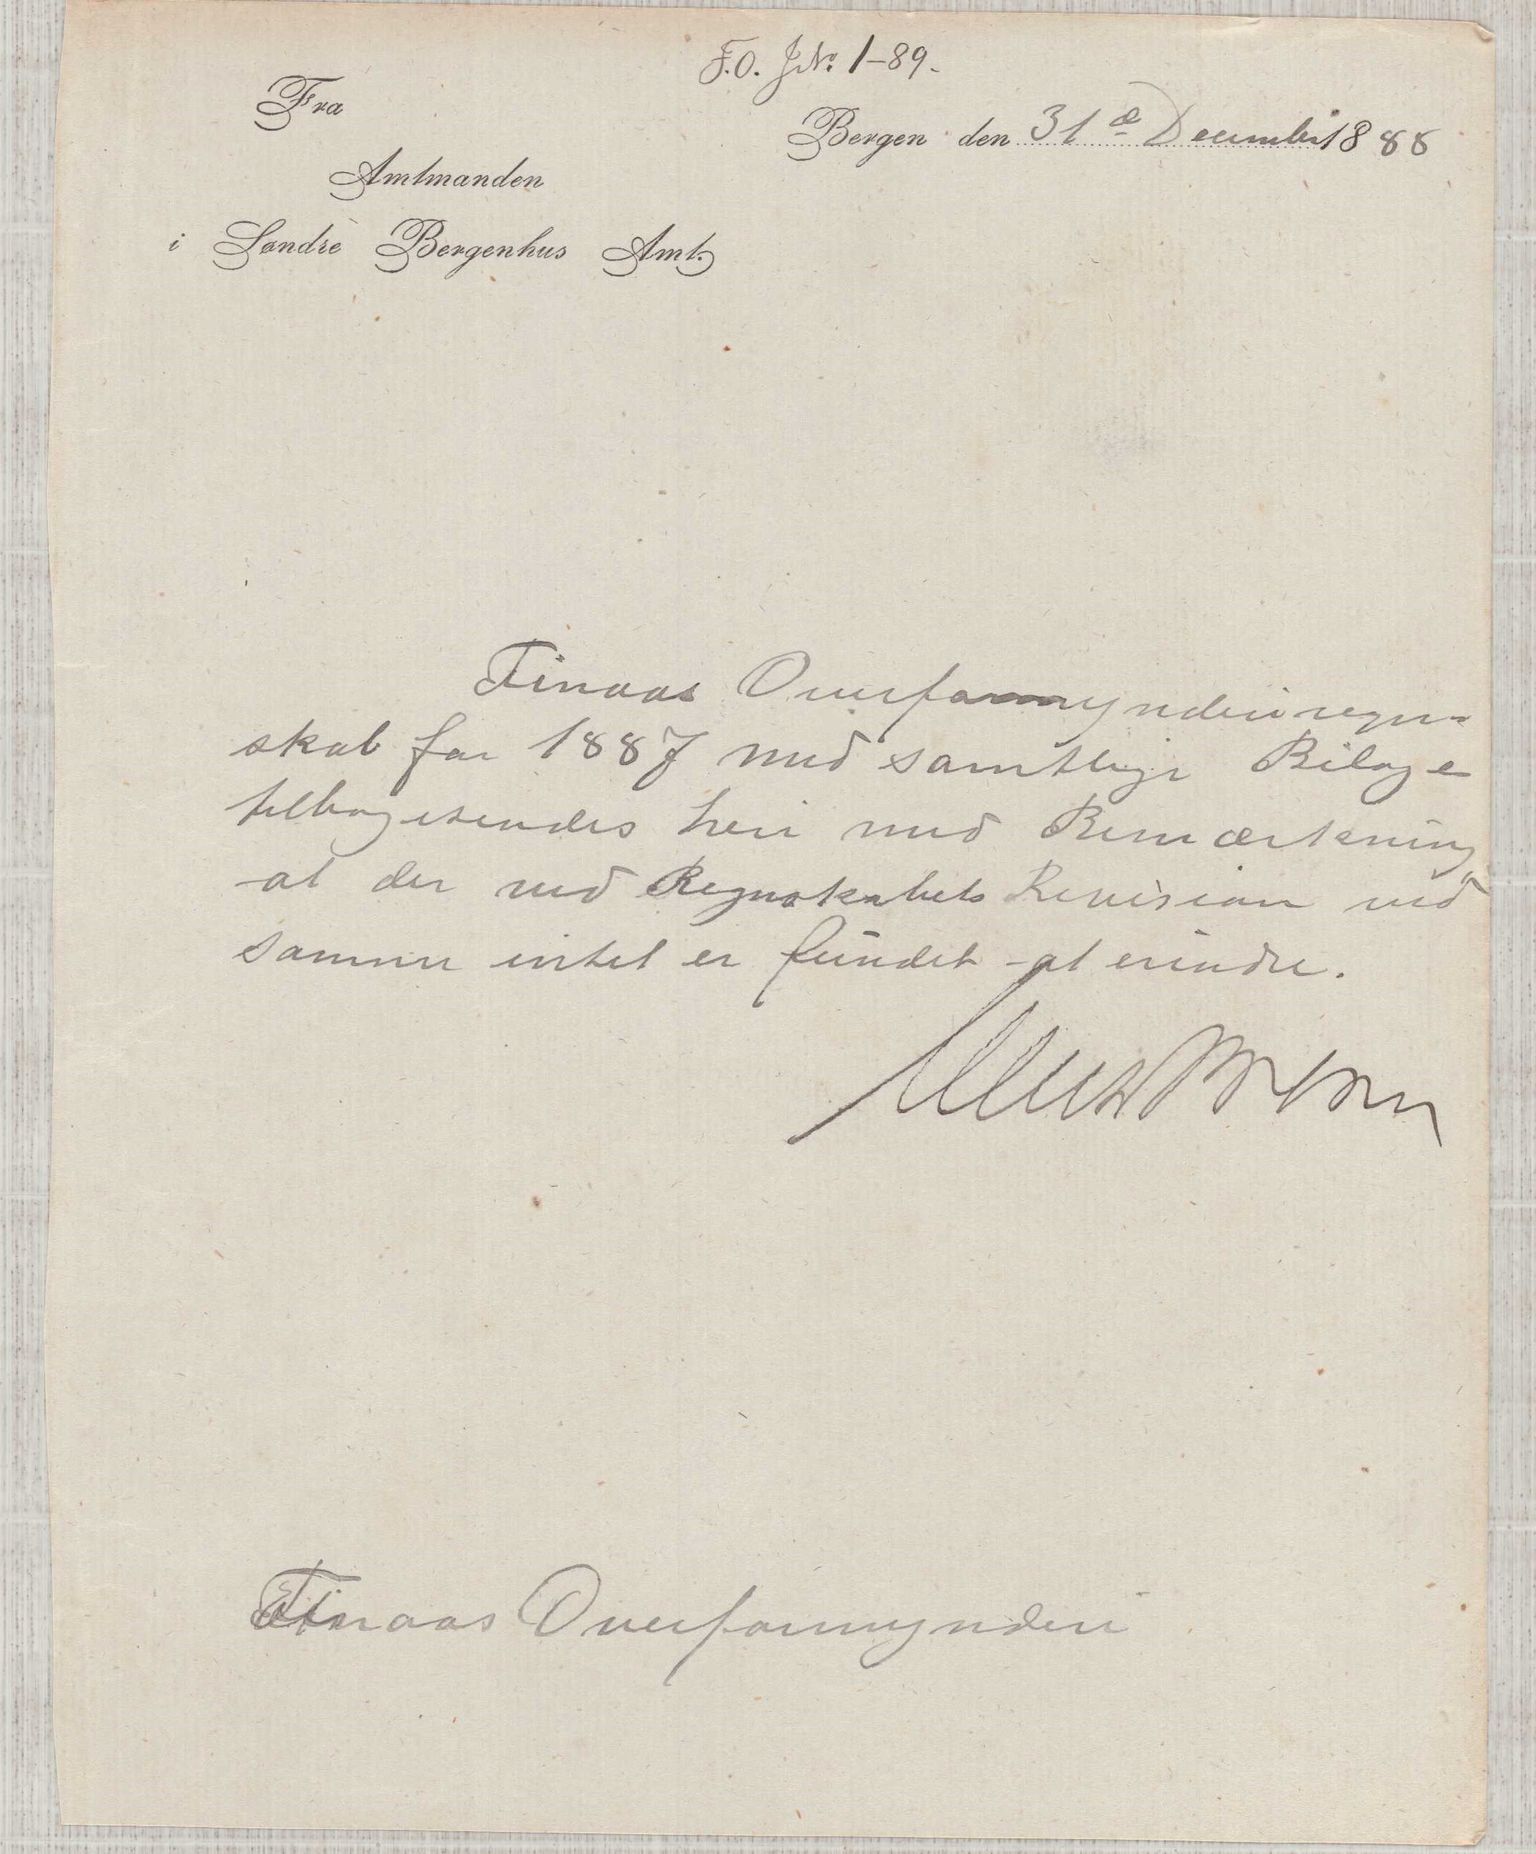 F.O. J.N: 1-89.
Fra
Bergen den 31te December 1888
Amtmanden
i Søndre Bergenhus Amt.
Finaas Overformynderiregn-
skab for 1887 med samtlige Bilage
tilbagesendes heri med Bemærkning
at der ved Regnskabets Revision ved
samme intet er fundet at erindre.
Finaas Overformynderi